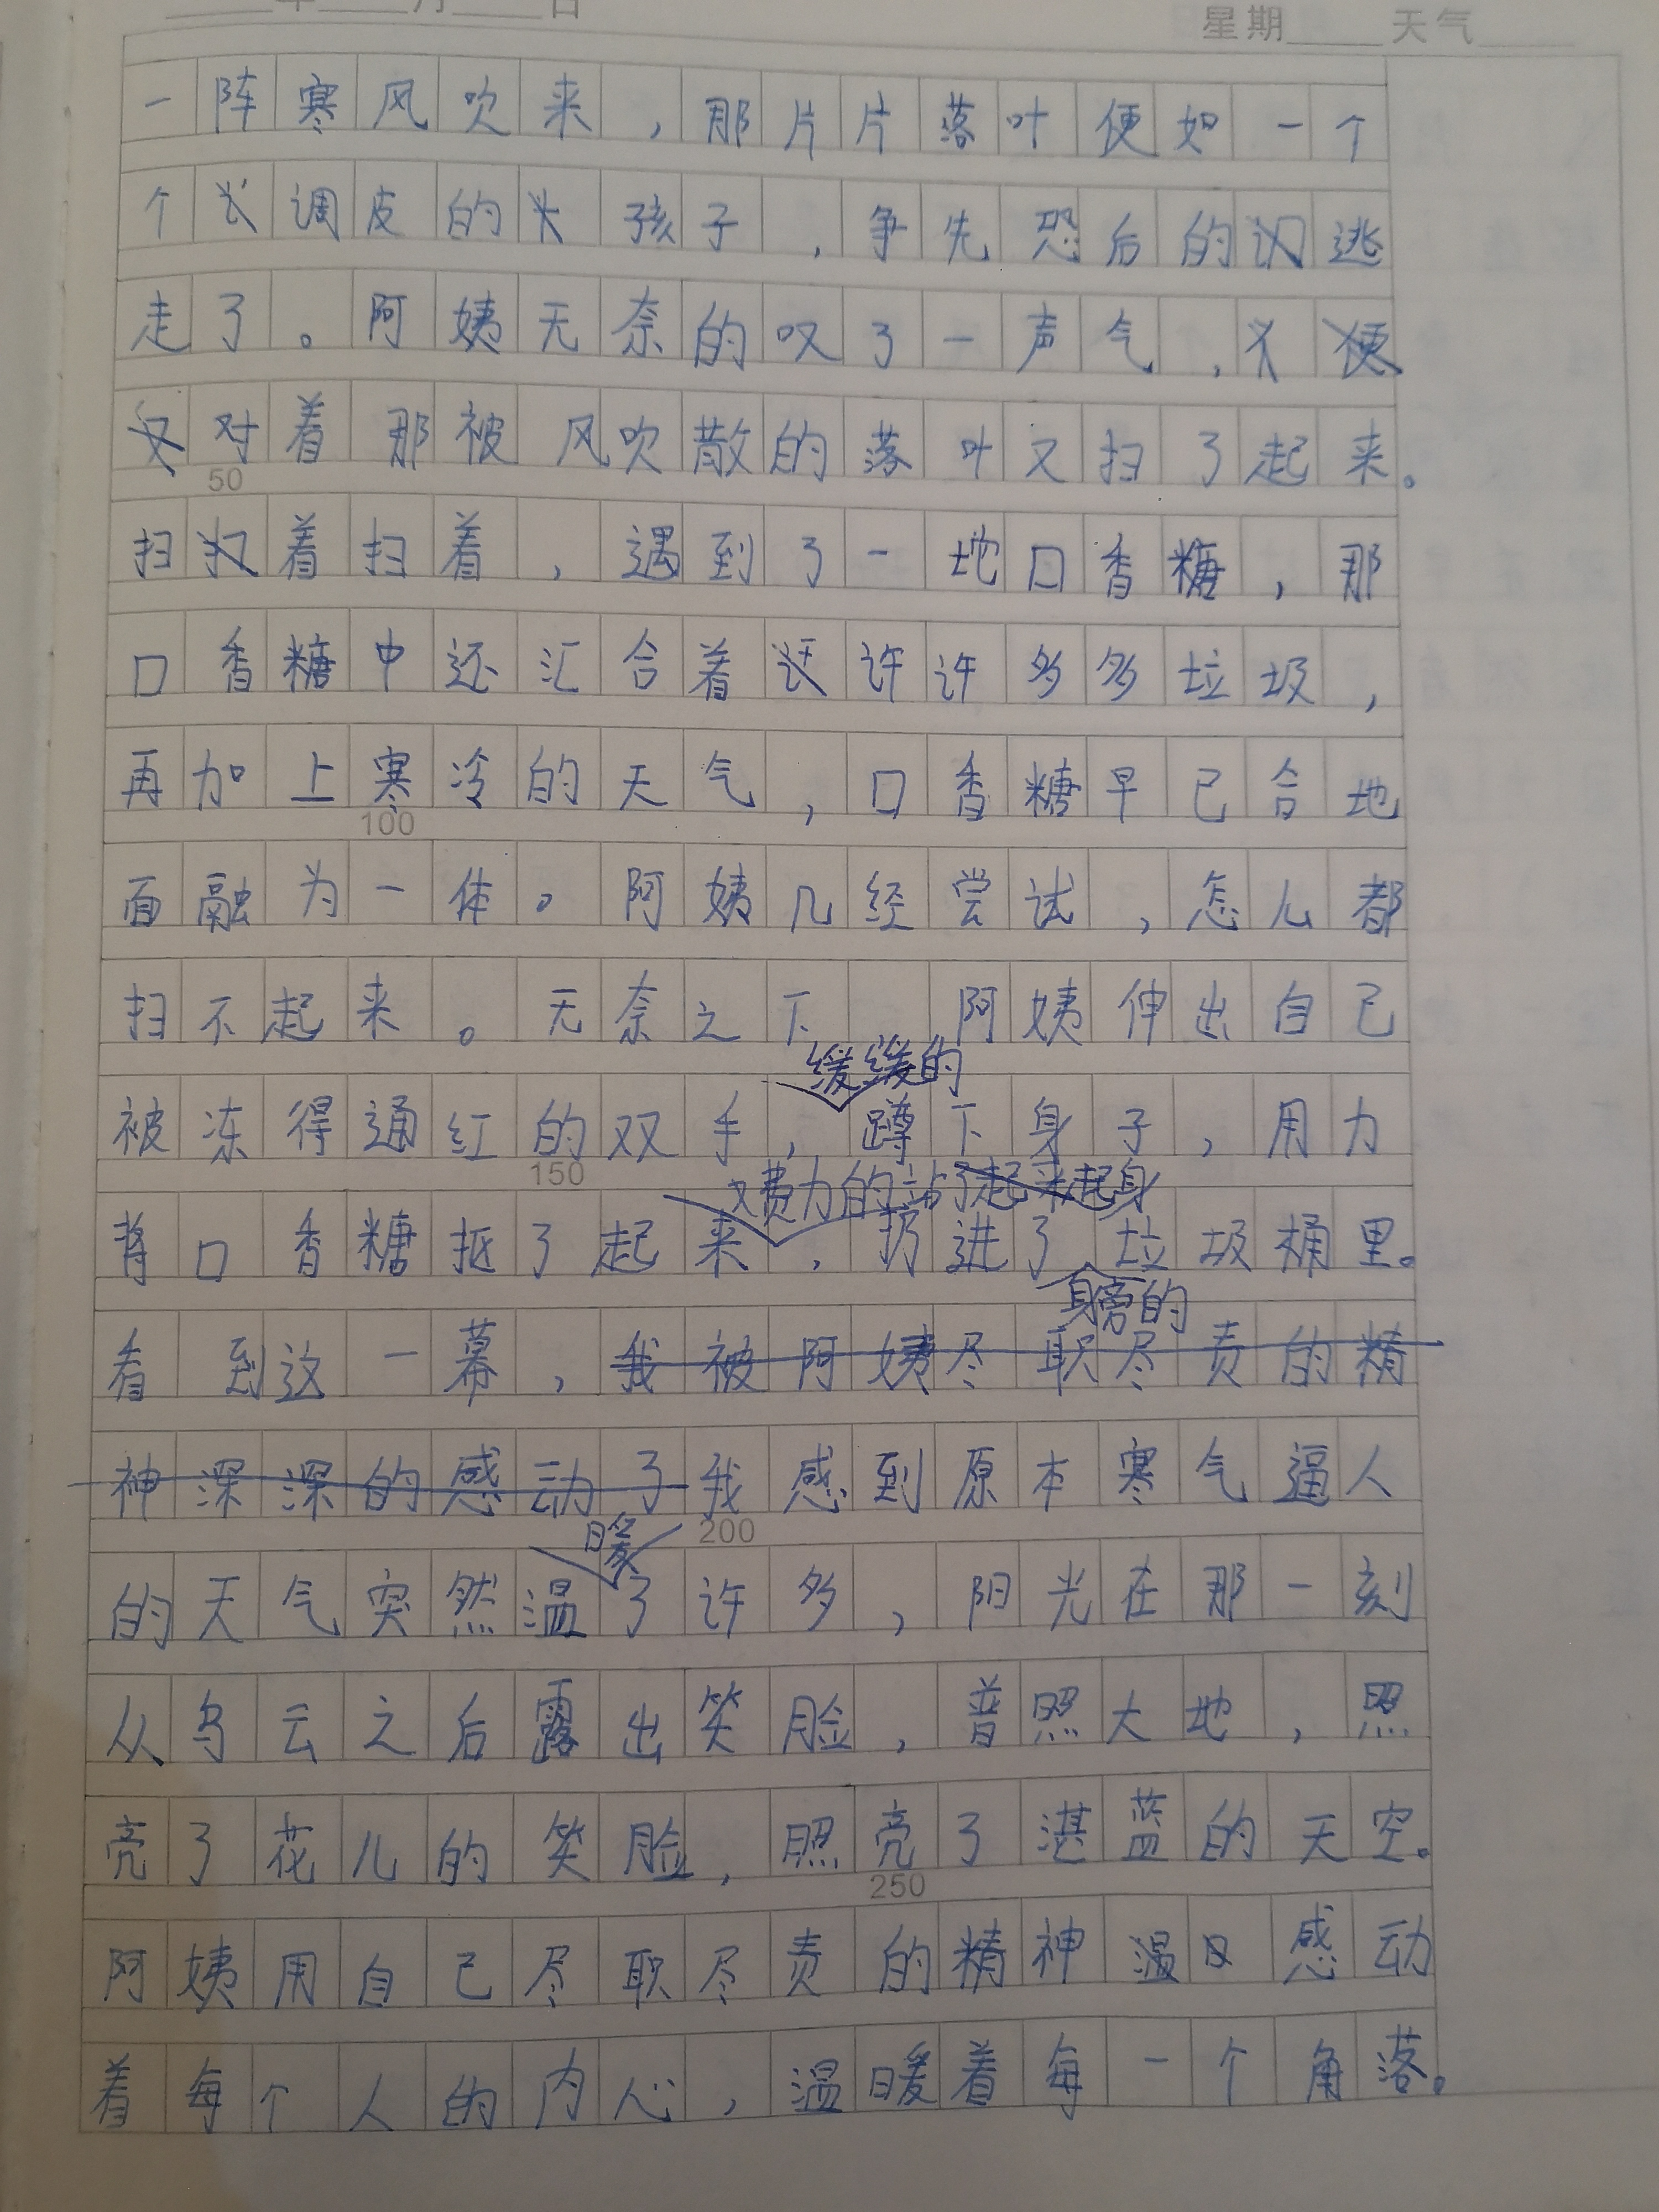 年 月 日
星期 天气
一阵寒风吹来，那片片落叶便如一个
个调皮的孩子，争先恐后的逃
走了。阿姨无奈的叹了一声气，
对着那被风吹散的落叶又扫了起来。
50
扫着扫着，遇到了一地口香糖，那
口香糖中还汇合着许许多多垃圾，
再加上寒冷的天气，口香糖早已合地
100
面融为一体。阿姨几经尝试，怎么都
扫不起来。无奈之下 阿姨伸出自己
缓缓的
被冻得通红的双手，蹲下身子，用力
150
又费力的站起身
将口香糖抠了起来，扔进了垃圾桶里。
身旁的
看到这一幕，我被阿姨尽职尽责的精
神深深的感动了我感到原本寒气逼人
200
暖
的天气突然温了许多，阳光在那一刻
从乌云之后露出笑脸，普照大地，照
亮了花儿的笑脸，照亮了湛蓝的天空。
250
阿姨用自己尽职尽责的精神感动
着每个人的内心，温暖着每一个角落。